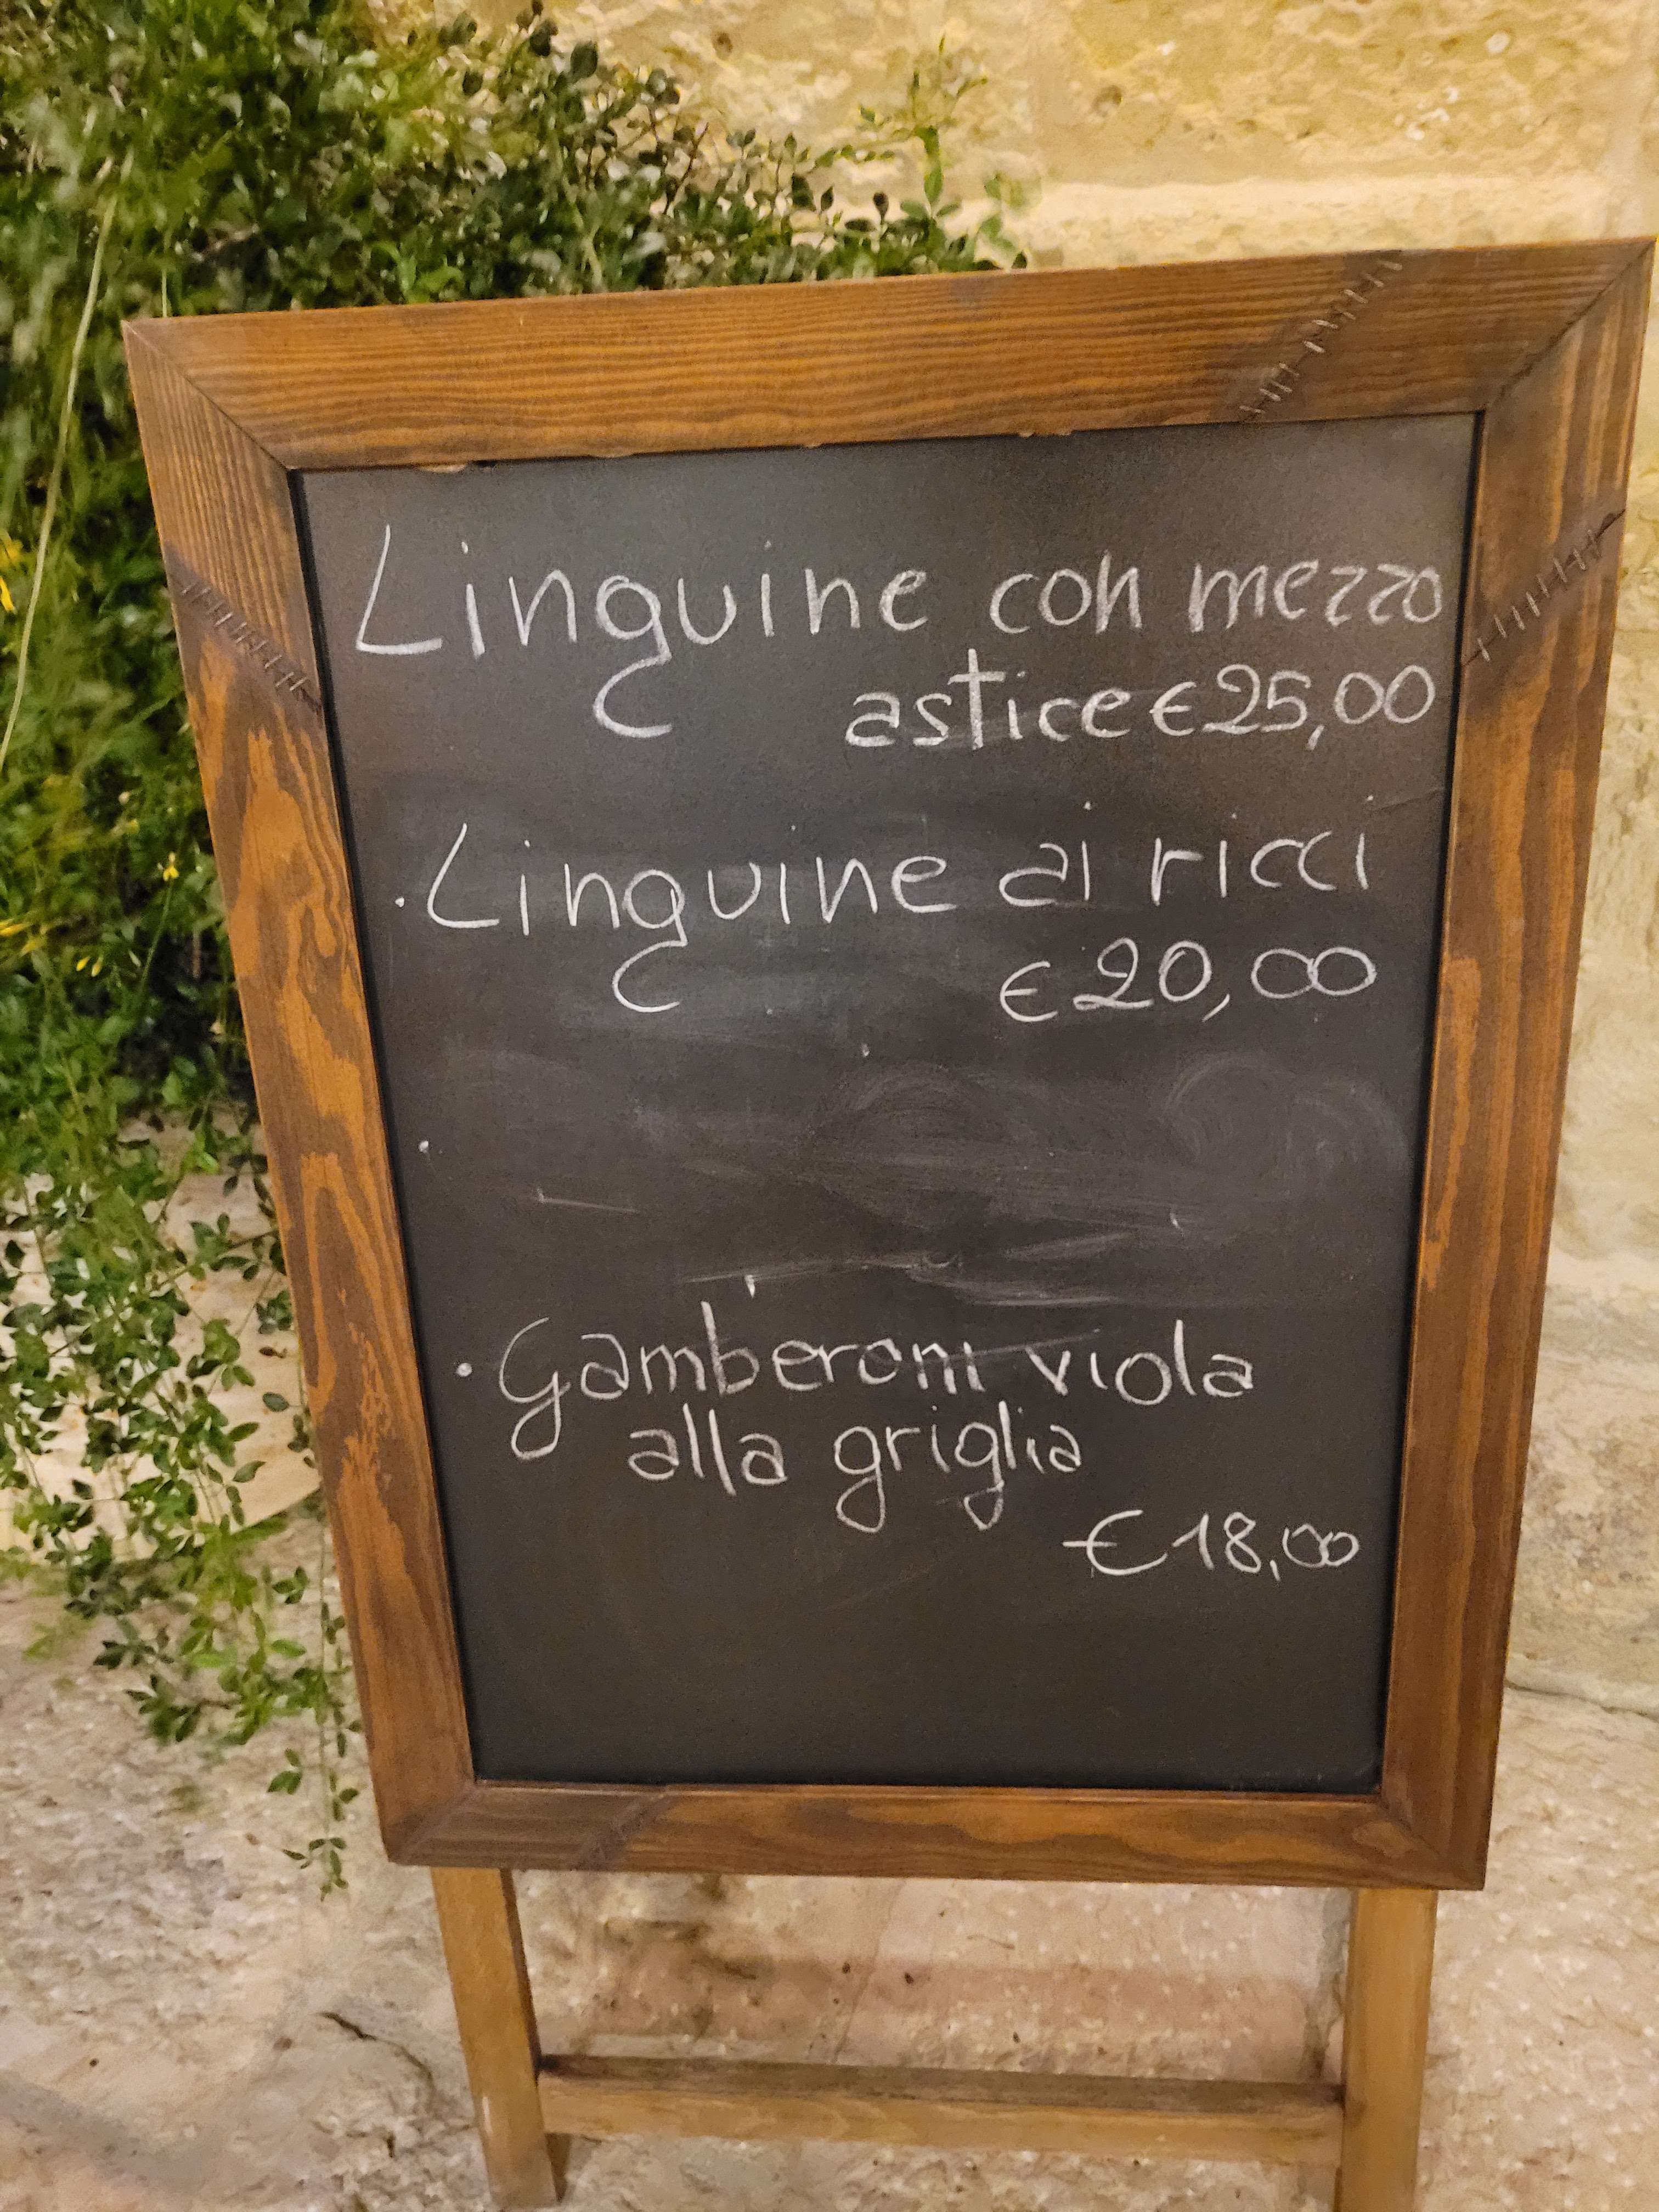 Linguine con mezzo
astice €25,00
· Linguine ai ricci
€20,00
·
· Gamberoni viola
alla griglia
€18,00